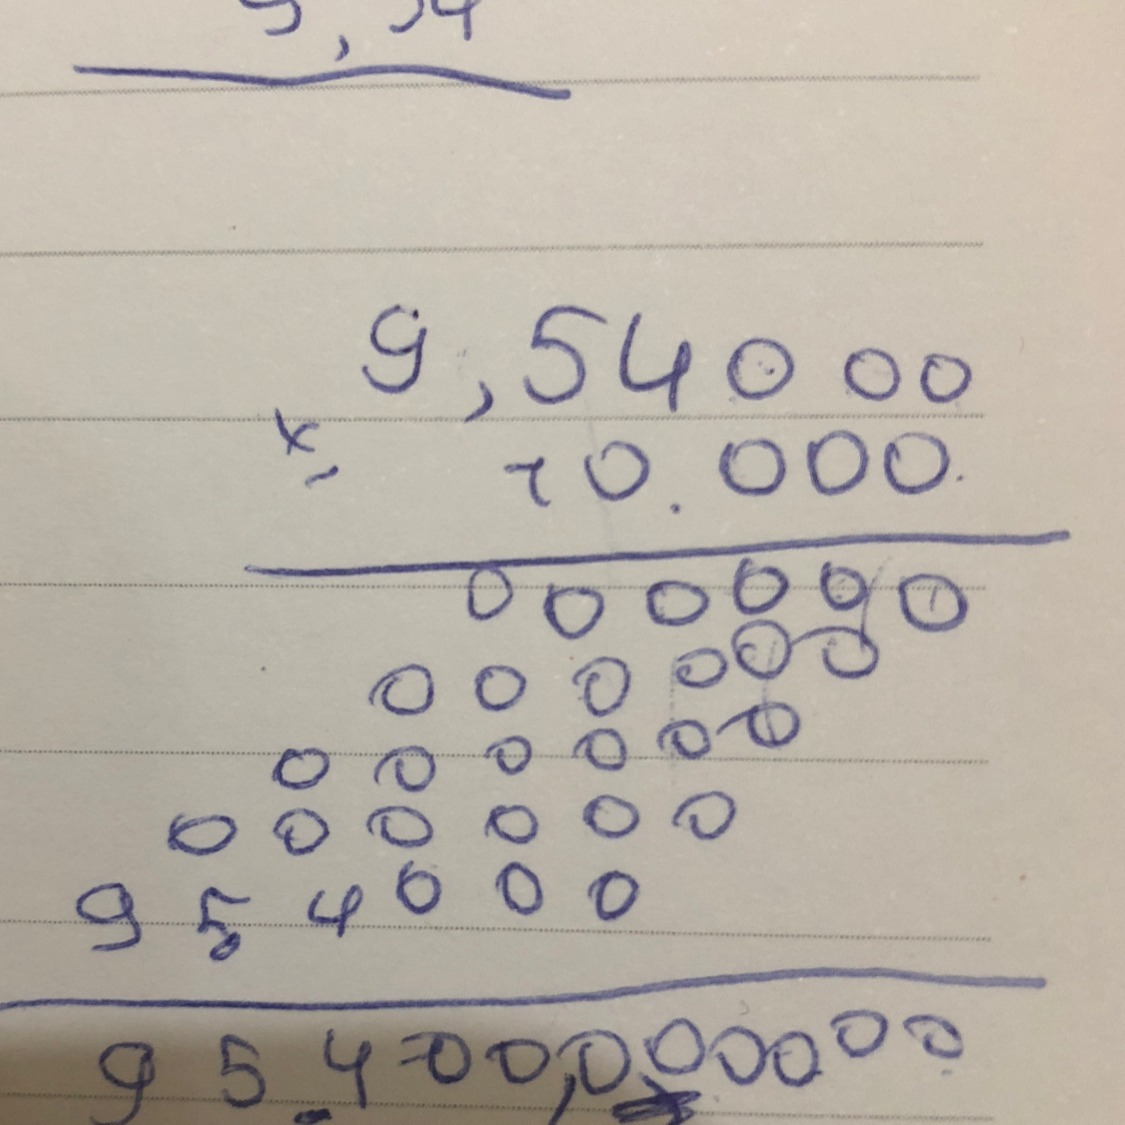 9,54000
x 10.000
000000
000000
000000
000000
954000
95.400,0000000